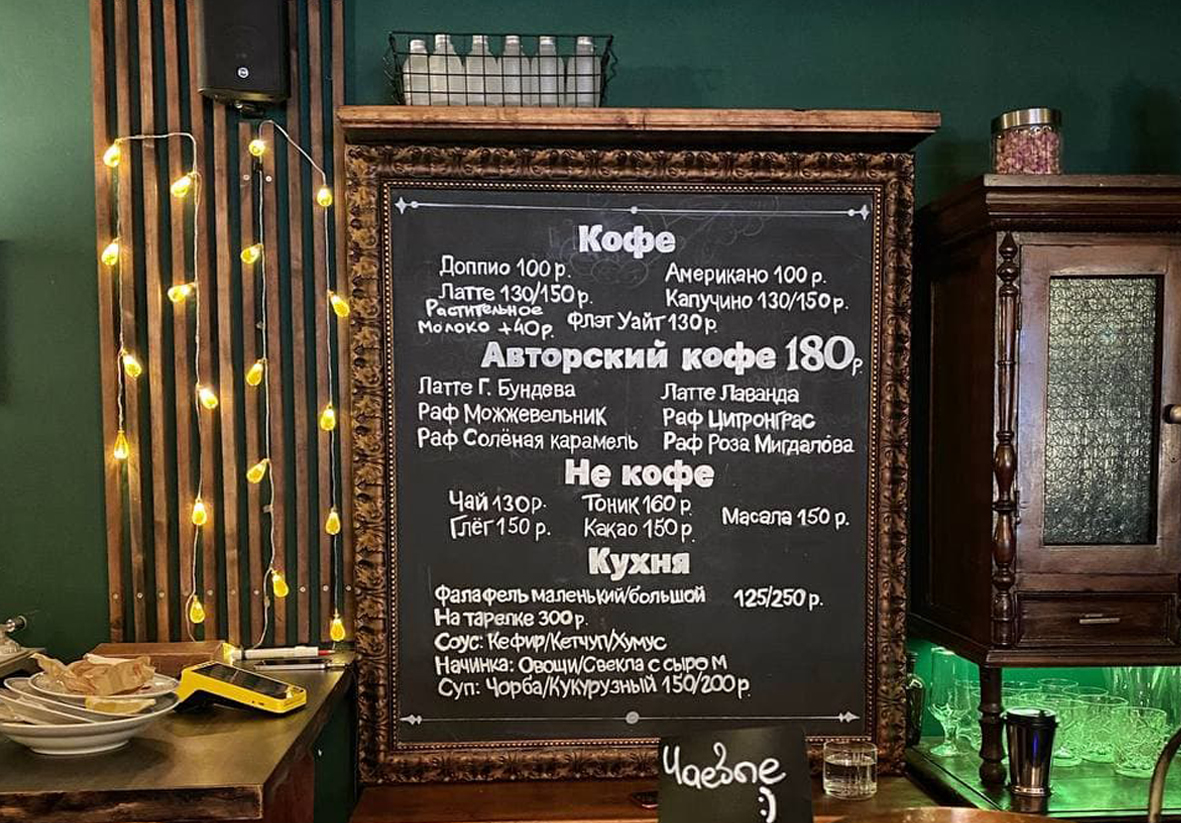 Кофе
Доппио 100 р. Американо 100 р.
Латте 130/150 р. Капучино 130/150 р.
Растительное
молоко +40 р. Флэт Уайт 130 р.
Авторский кофе 180 р.
Латте Г. Бундева Латте Лаванда
Раф Можжевельник Раф Цитронграс
Раф Солёная карамель Раф Роза Мигдалова
Не кофе
Чай 130 р. Тоник 160 р. Масала 150 р.
Глёг 150 р. Какао 150 р.
Кухня
Фалафель маленький/большой 125/250 р.
На тарелке 300 р.
Соус: Кефир/Кетчуп/Хумус
Начинка: Овощи/Свекла с сыром
Суп: Чорба/Кукурузный 150/200 р.
Чаевые
:)